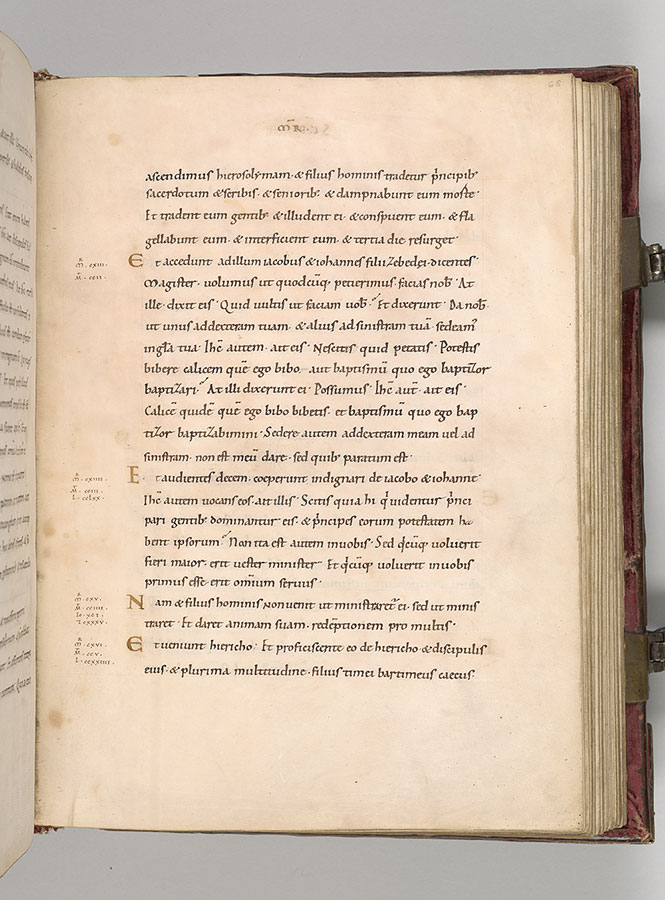 M̄R
ascendimus hierosolymam · & filius hominis tradetur p̄ncipib;
sacerdotum & scribis · & seniorib; & dampnabunt eum morte ·
Et tradent eum gentib; & illudent ei · & conspuent eum · & fla
gellabunt eum · & interficient eum · & tertia die resurget ·
Et accedunt ad illum iacobus & iohannes filii Zebedei · dicentes ·
Magister · volumus ut quodcūq; petierimus facias nob̄ · At
ille · dixit eis · Quid vultis ut faciam vob̄ · Et dixerunt · Da nob̄ ·
ut unus ad dexteram tuam · & alius ad sinistram tuā · sedeam̄
in gl̄a tua · Ihc̄ autem · ait eis · Nescitis quid petatis · Potestis
bibere calicem quē ego bibo · aut baptismū quo ego baptiZor
baptiZari · At illi dixerunt ei · Possumus · Ihc̄ aut̄ · ait eis ·
Calicē quidē quē ego bibo bibetis · et baptismū quo ego bap
tiZor baptiZabimini · Sedere autem ad dexteram meam vel ad
sinistram · non est meū dare · sed quib; paratum est ·
Et audientes decem · coeperunt indignari de iacobo & iohanne ·
Ihc̄ autem vocans eos · ait illis · Scitis quia hi q̇ videntur p̄nci
pari gentib; dominantur eis · & p̄ncipes eorum potestatem ha
bent ipsorum · Non ita est autem in vobis · Sed q̇cūq; voluerit
fieri maior · erit vester minister · Et q̇cūq; voluerit in vobis
primus esse · erit omnium servus ·
Nam & filius hominis non venit ut ministraret̄ ei · sed ut minis
traret · Et daret animam suam · redēptionem pro multis ·
Et veniunt hiericho · Et proficiscente eo de hiericho · & discipulis
eius · & plurima multitudine · filius timei bartimeus caecus